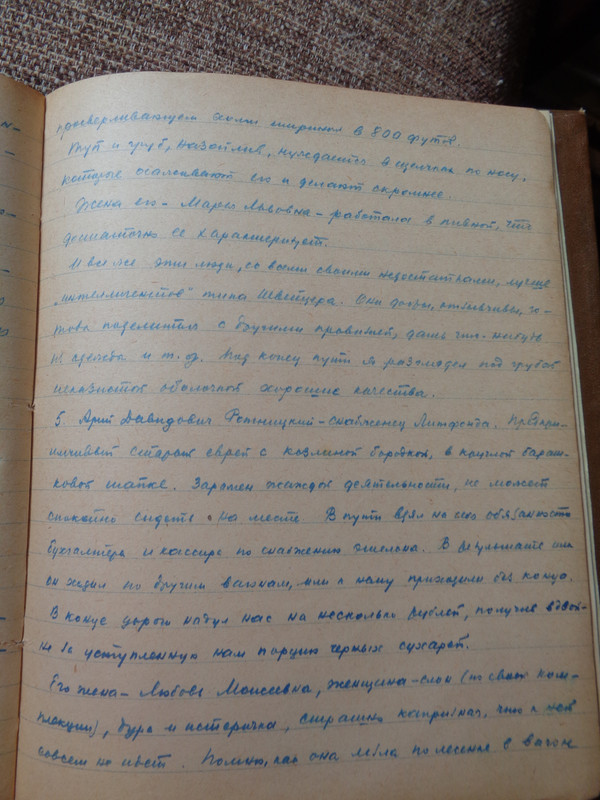 просверливающем скалы шириной в 800 футов.
Туп и груб, назойлив, нуждается в щелчках по носу,
которые осаживают его и делают скромнее.
Жена его - Марья Львовна - работала в пивной, что
достаточно ее характеризует.
И все же эти люди, со всеми своими недостатками, лучше
„интеллигентов" типа Швейцера. Они добры, отзывчивы, го-
товы поделиться с другими провизией, дать что-нибудь
из одежды и т.д. Под конец пути я разглядел под грубой
неказистой оболочкой хорошие качества.
5 Арий Давидович Ротницкий - снабженец Литфонда. Предпри-
имчивый старик еврей с козлиной бородкой, в круглой бараш-
ковой шапке. Заражен жаждой деятельности, не может
спокойно сидеть на месте. В пути взял на себя обязанности
бухгалтера и кассира по снабжению эшелона. В результате или
он ходил по другим вагонам, или к нему приходили без конца.
В конце дороги надул нас на несколько рублей, получив вдвой-
не за уступленную нам порцию черных сухарей.
Его жена - Любовь Моисеевна, женщина-слон (по своей ком-
плекции), дура и истеричка, страшно капризная, что к ней
совсем не идет. Помню, как она лезла по лесенке в вагон